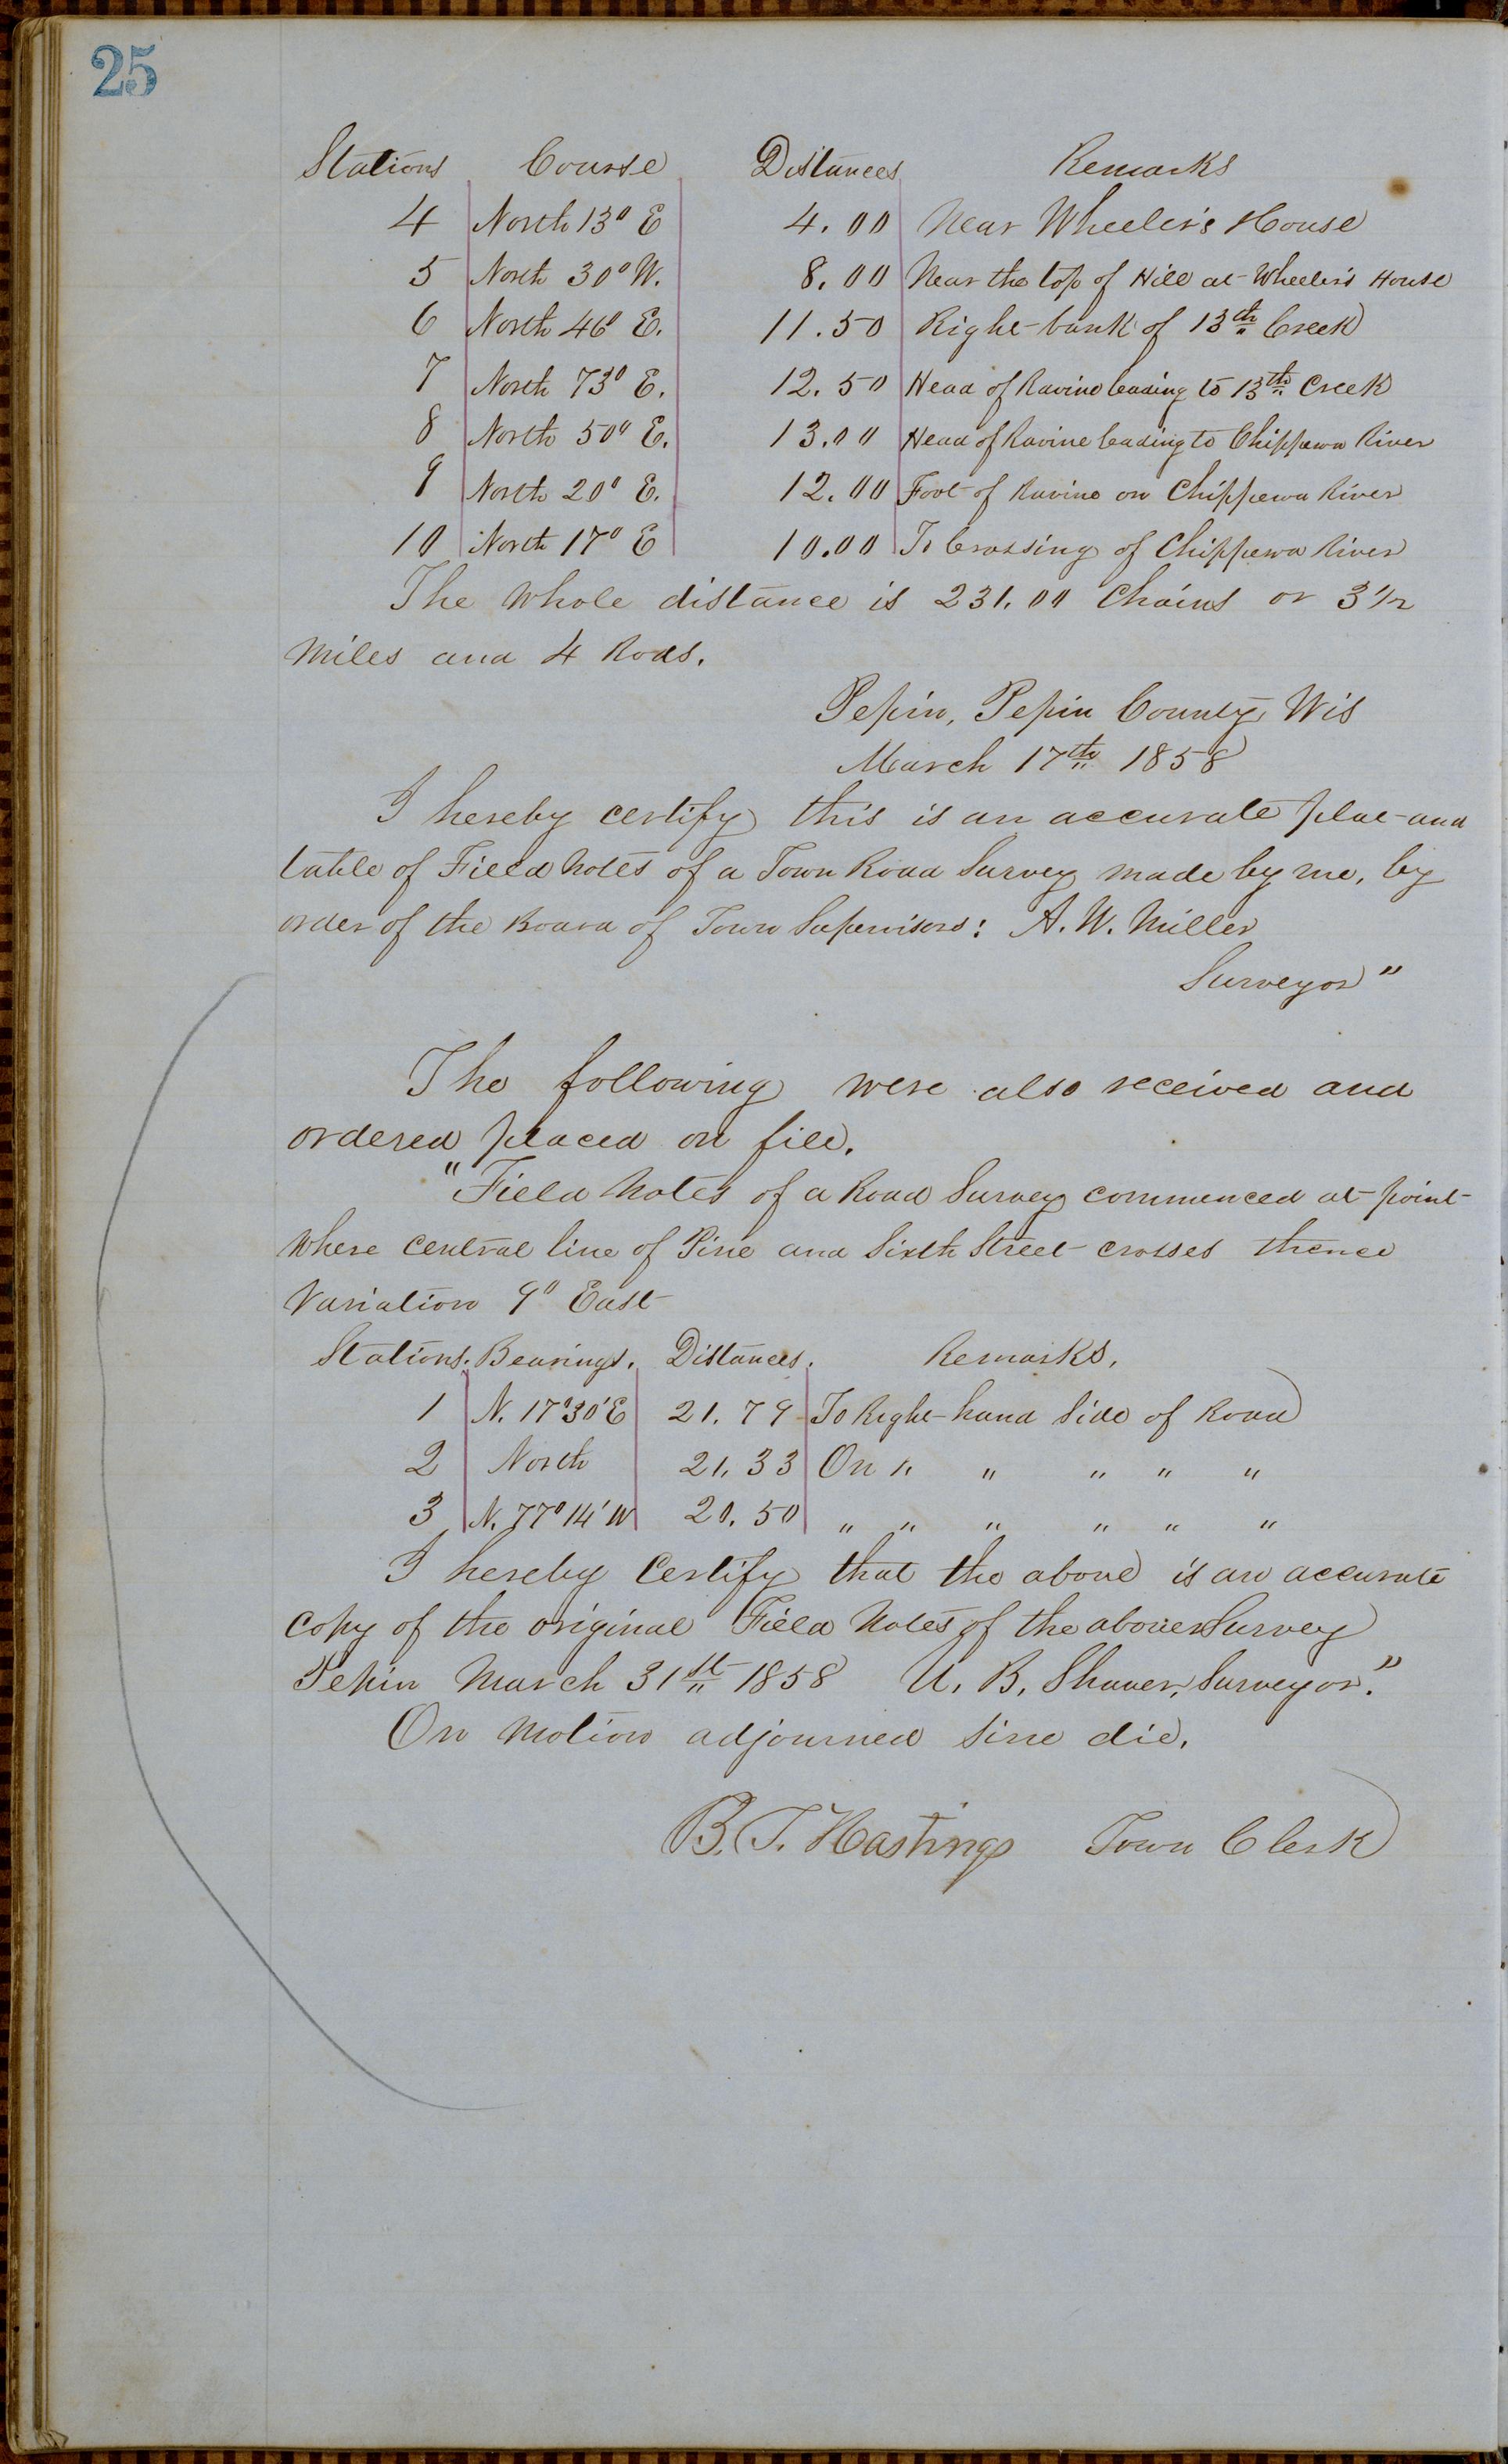 25
Stations Course Distances Remarks
4 North 13° E 4.00 Near Wheeler's House
5 North 30° W. 8.00 Near the top of Hill at Wheeler's House
6 North 46° E. 11.50 Right bank of 13th Creek
7 North 73° E. 12.50 Head of Ravine leading to 13th Creek
8 North 50° E. 13.00 Head of Ravine leading to Chippewa River
9 North 20° E. 12.00 Foot of Ravine on Chippewa River
10 North 17° E 10.00 To Crossing of Chippewa River
The whole distance is 231.00 Chains or 3 1/2
Miles and 4 Rods.
Pepin, Pepin County, Wis
March 17th 1858
I hereby certify this is an accurate plat and
table of Field Notes of a Town Road Survey made by me, by
order of the Board of Town Supervisors: A. W. Miller
Surveyor"
The following were also received and
ordered placed on file.
"Field Notes of a Road Survey commenced at point
where central line of Pine and Sixth Street crosses thence
Variation 9° East
Stations. Bearings. Distances. Remarks.
1 N. 17°30'E 21.79 To Right hand Side of Road
2 North 21.33 On " " " " "
3 N. 77°14'W 20.50 " " " " " "
I hereby Certify that the above is an accurate
copy of the original Field Notes of the above Survey
Pepin March 31st 1858 U. B. Shaver, Surveyor."
On Motion adjourned sine die.
B. T. Hastings Town Clerk